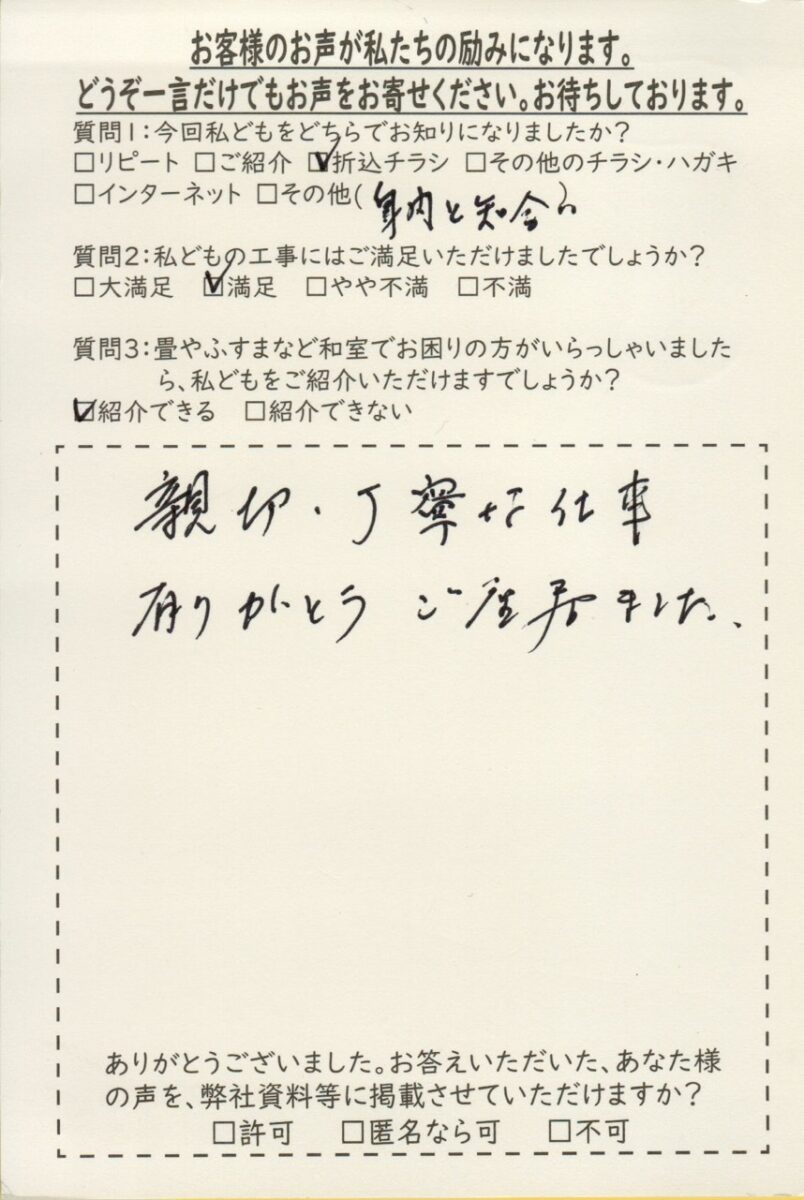 お客様のお声が私たちの励みになります。
どうぞ一言だけでもお声をお寄せください。お待ちしております。
質問1:今回私どもをどちらでお知りになりましたか?
□リピート □ご紹介 ☑折込チラシ □その他のチラシ・ハガキ
□インターネット □その他(身内と知合い)
質問2:私どもの工事にはご満足いただけましたでしょうか?
□大満足 ☑満足 □やや不満 □不満
質問3:畳やふすまなど和室でお困りの方がいらっしゃいました
ら、私どもをご紹介いただけますでしょうか?
☑紹介できる □紹介できない
親切・丁寧な仕事
有りがとうご座居ました、
ありがとうございました。お答えいただいた、あなた様
の声を、弊社資料等に掲載させていただけますか?
□許可 □匿名なら可 □不可